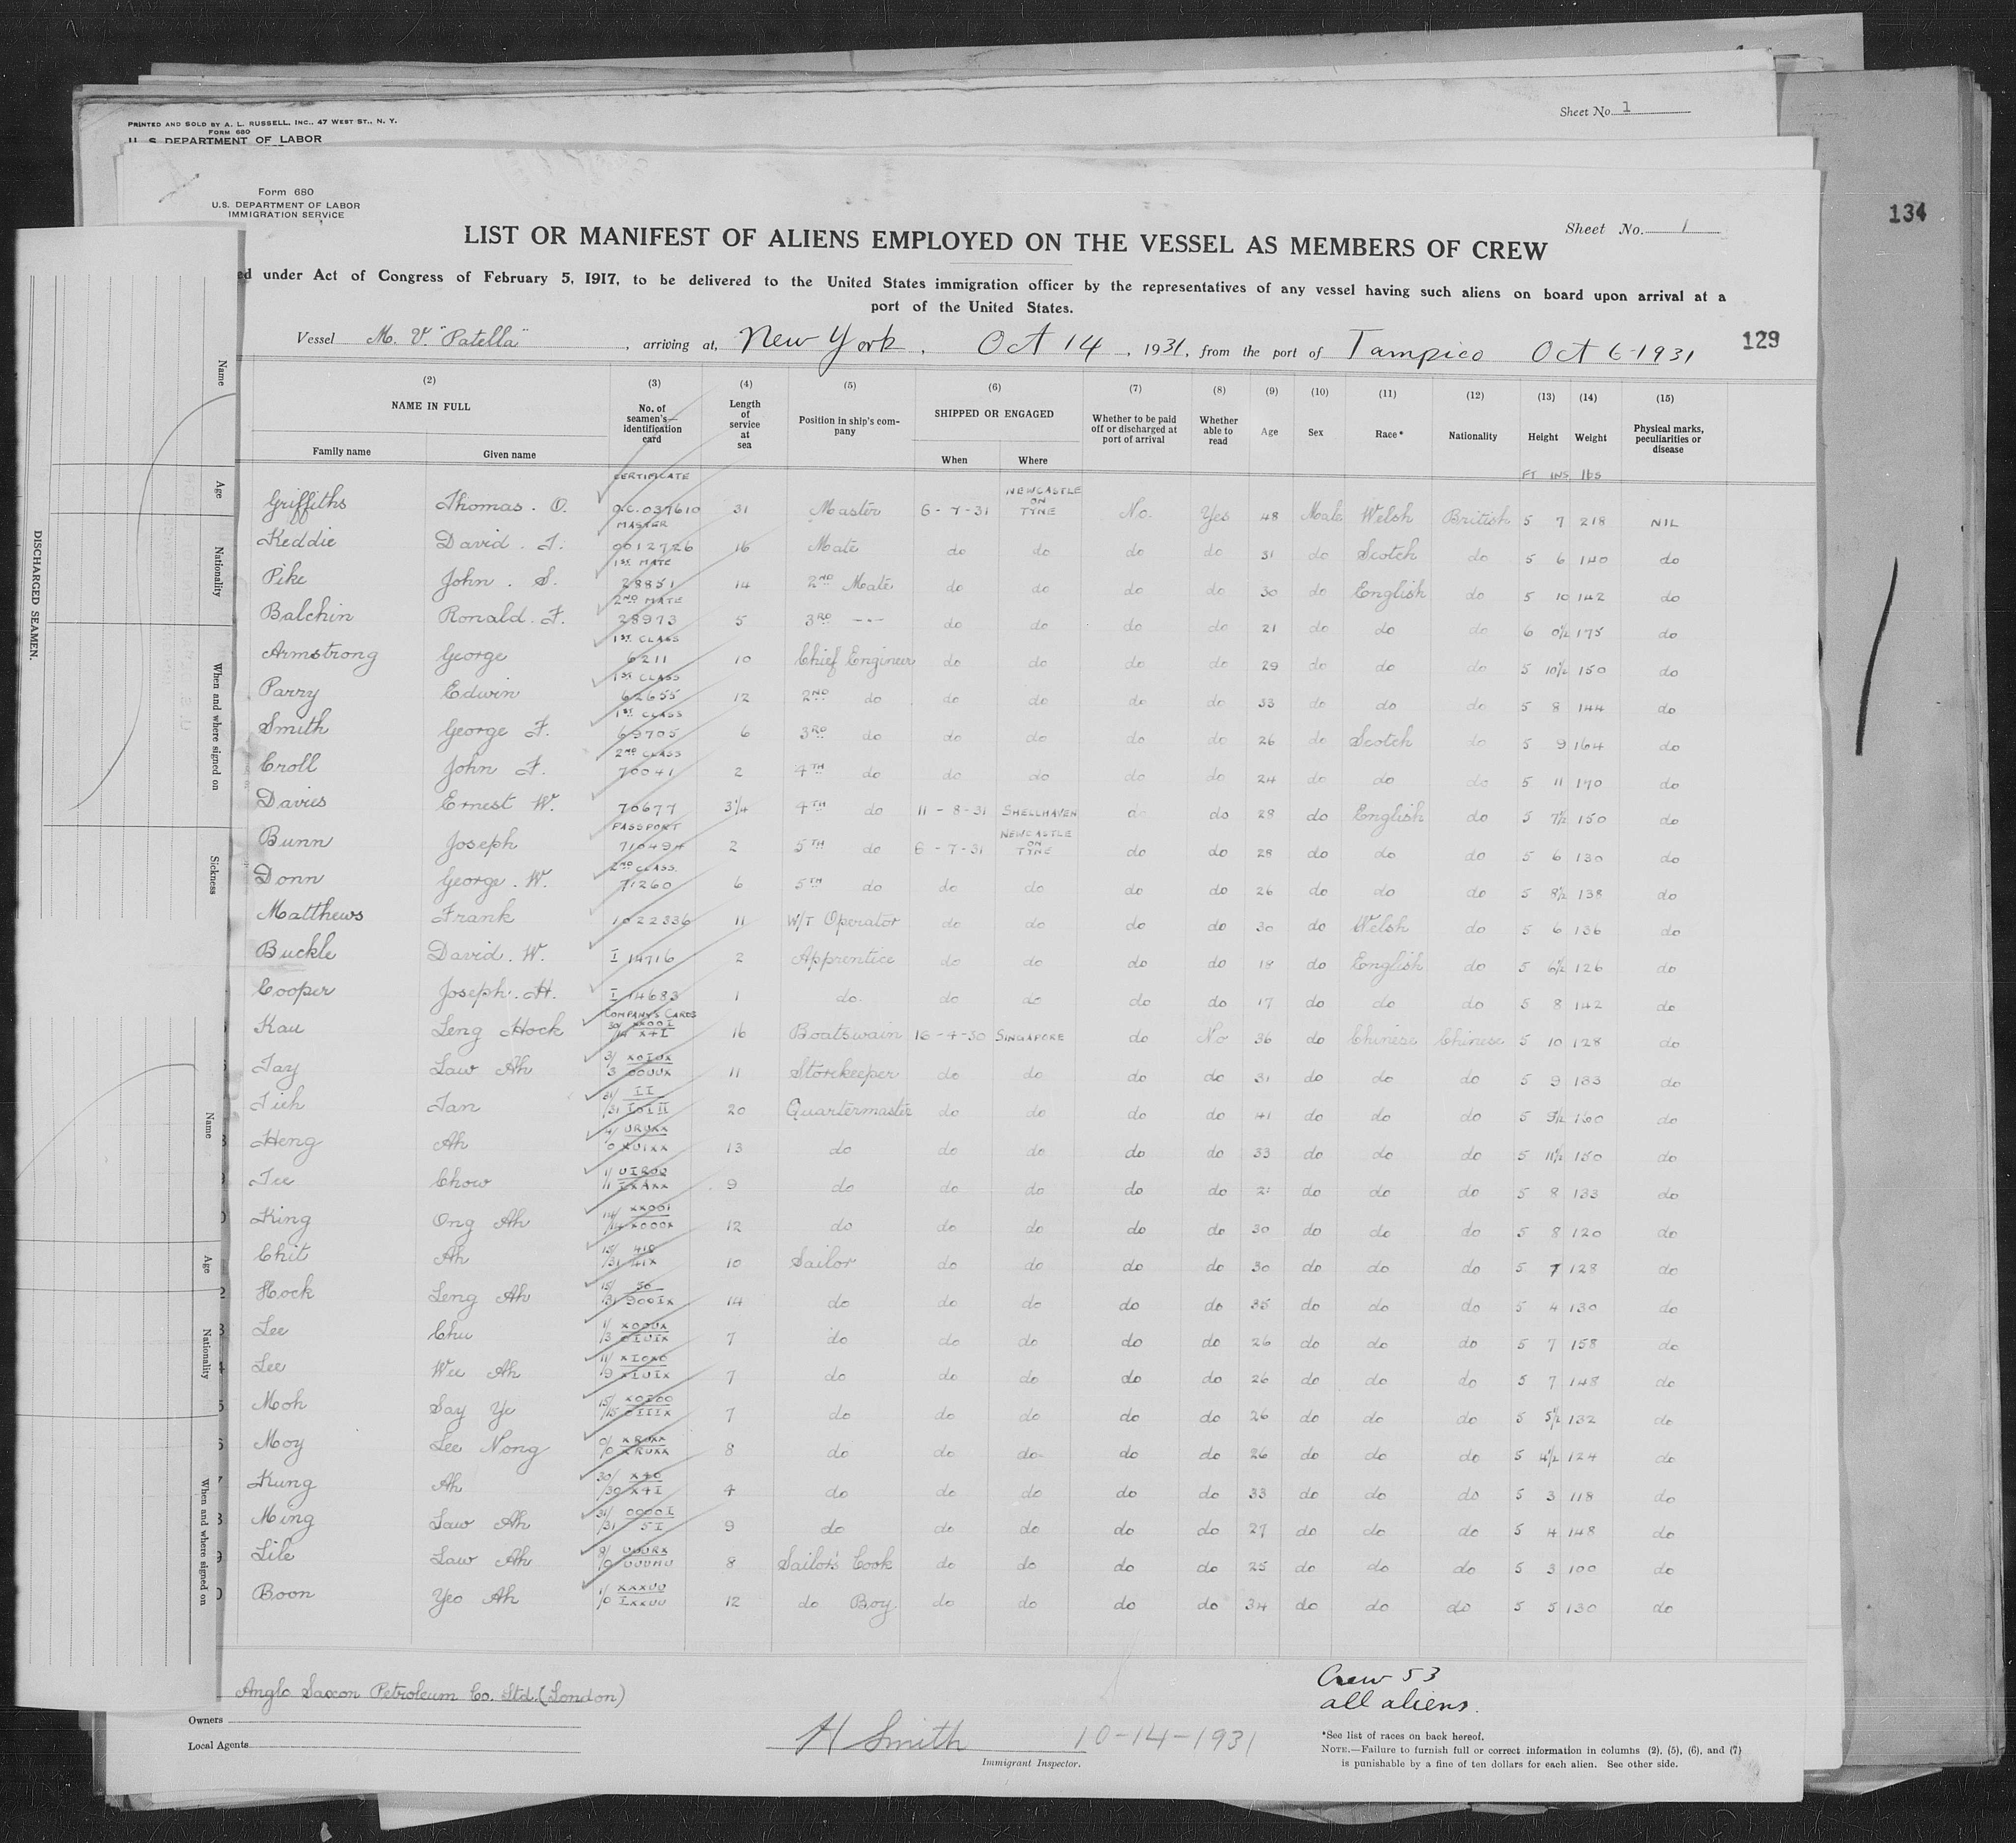 PRINTED AND SOLD BY A. L. RUSSELL, INC., 47 WEST ST., N. Y.
FORM 680
U. S. DEPARTMENT OF LABOR
Sheet No. 1
134
Form 680
U.S. DEPARTMENT OF LABOR
IMMIGRATION SERVICE
Sheet No. 1
LIST OR MANIFEST OF ALIENS EMPLOYED ON THE VESSEL AS MEMBERS OF CREW
ed under Act of Congress of February 5, 1917, to be delivered to the United States immigration officer by the representatives of any vessel having such aliens on board upon arrival at a
port of the United States.
Vessel M. V. "Patella", arriving at, New York, Oct 14, 1931, from the port of Tampico Oct 6-1931
129
(2) (3) (4) (5) (6) (7) (8) (9) (10) (11) (12) (13) (14) (15)
NAME IN FULL No. of seamen's identification card Length of service at sea Position in ship's company SHIPPED OR ENGAGED Whether to be paid off or discharged at port of arrival Whether able to read Age Sex Race* Nationality Height Weight Physical marks, peculiarities or disease
Family name Given name When Where
CERTIFICATE FT INS lbs
Griffiths Thomas. O. O.C. 037610 MASTER 31 Master 6-7-31 NEWCASTLE ON TYNE No. Yes 48 Male Welsh British 5 7 218 NIL
Keddie David. F. 0012726 1ST MATE 16 Mate do do do do 31 do Scotch do 5 6 140 do
Pike John. S. 28851 2ND MATE 14 2ND Mate do do do do 30 do English do 5 10 142 do
Balchin Ronald. F. 28973 1ST CLASS 5 3RD -"- do do do do 21 do do do 6 0½ 175 do
Armstrong George 6211 1ST CLASS 10 Chief Engineer do do do do 29 do do do 5 10½ 150 do
Parry Edwin 62655 1ST CLASS 12 2ND do do do do do 33 do do do 5 8 144 do
Smith George F. 69705 2ND CLASS 6 3RD do do do do do 26 do Scotch do 5 9 164 do
Croll John F. 70041 2 4TH do do do do do 24 do do do 5 11 170 do
Davies Ernest W. 70677 PASSPORT 3¼ 4TH do 11-8-31 SHELLHAVEN do do 28 do English do 5 7½ 150 do
Bunn Joseph 710494 2ND CLASS. 2 5TH do 6-7-31 NEWCASTLE ON TYNE do do 28 do do do 5 6 130 do
Donn George. W. 71260 6 5TH do do do do do 26 do do do 5 8½ 138 do
Matthews Frank 1022336 11 W/T Operator do do do do 30 do Welsh do 5 6 136 do
Buckle David. W. I 14716 2 Apprentice do do do do 18 do English do 5 6½ 126 do
Cooper Joseph. H. I 14683 1 do. do do do do 17 do do do 5 8 142 do
COMPANY'S CARDS
Kau Leng Hock 16 Boatswain 16-4-30 SINGAPORE do No 36 do Chinese Chinese 5 10 128 do
Tay Law Ah 11 Storekeeper do do do do 31 do do do 5 9 133 do
Tieh Tan 20 Quartermaster do do do do 41 do do do 5 9½ 160 do
Heng Ah 13 do do do do do 33 do do do 5 11½ 150 do
Tee Chow 9 do do do do do do do do 5 8 133 do
King Ong Ah 12 do do do do do 30 do do do 5 8 120 do
Chit Ah 10 Sailor do do do do 30 do do do 5 7 128 do
Hock Leng Ah 14 do do do do do 35 do do do 5 4 130 do
Lee Chu 7 do do do do do 26 do do do 5 7 158 do
Lee Wee Ah 7 do do do do do 26 do do do 5 7 148 do
Moh Say Ye 7 do do do do do 26 do do do 5 5½ 132 do
Moy Lee Nong 8 do do do do do 26 do do do 5 4½ 124 do
Kung Ah 4 do do do do do 33 do do do 5 3 118 do
Ming Law Ah 9 do do do do do 27 do do do 5 4 148 do
Lile Law Ah 8 Sailor's Cook do do do do 25 do do do 5 3 100 do
Boon Yeo Ah 12 do Boy. do do do do 34 do do do 5 5 130 do
Anglo Saxon Petroleum Co. Ltd. (London)
Owners
Local Agents
H Smith 10-14-1931
Immigrant Inspector.
Crew 53
all aliens.
*See list of races on back hereof.
NOTE.—Failure to furnish full or correct information in columns (2), (5), (6), and (7)
is punishable by a fine of ten dollars for each alien. See other side.
DISCHARGED SEAMEN.
Name
Age
Nationality
When and where signed on
Sickness
Name
Age
Nationality
When and where signed on